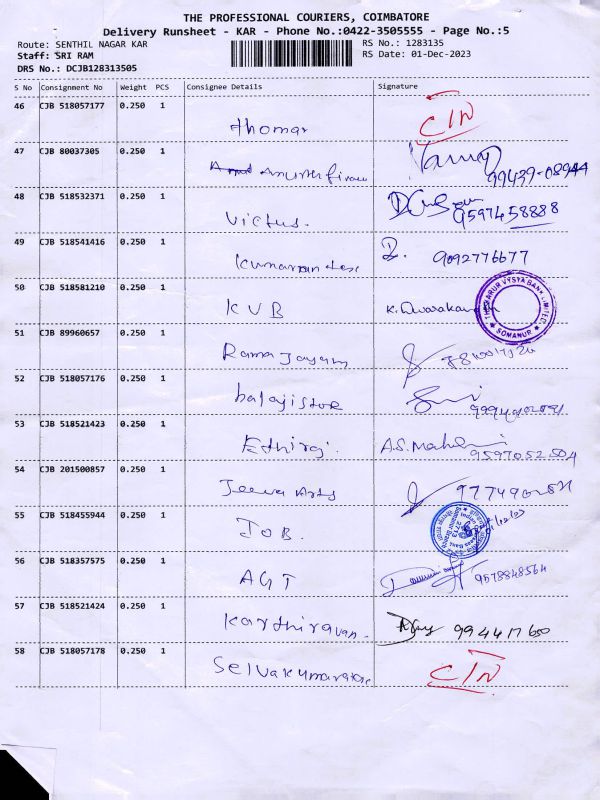 THE PROFESSIONAL COURIERS, COIMBATORE
Delivery Runsheet - KAR - Phone No.:0422-3505555 - Page No.:5
Route: SENTHIL NAGAR KAR RS No.: 1283135
Staff: SRI RAM RS Date: 01-Dec-2023
DRS No.: DCJB128313505
S No Consignment No Weight PCS Consignee Details Signature
46 CJB 518057177 0.250 1
Thomas
47 CJB 80037305 0.250 1
99439-08944
48 CJB 518532371 0.250 1
Victus.
9597458888
49 CJB 518541416 0.250 1
Kumaran
9092776677
50 CJB 518581210 0.250 1
KVB K. Dwaraka
THE KARUR VYSYA BANK LIMITED
SOMANUR
51 CJB 89960657 0.250 1
Rama Jayam
52 CJB 518057176 0.250 1
balaji store
53 CJB 518521423 0.250 1
Ethiraj. A.S. Mahe
9597052504
54 CJB 201500857 0.250 1
Jeeva Arts
55 CJB 518455944 0.250 1
IOB.
56 CJB 518357575 0.250 1
AGT 9578848564
57 CJB 518521424 0.250 1
Karthiravan.
58 CJB 518057178 0.250 1